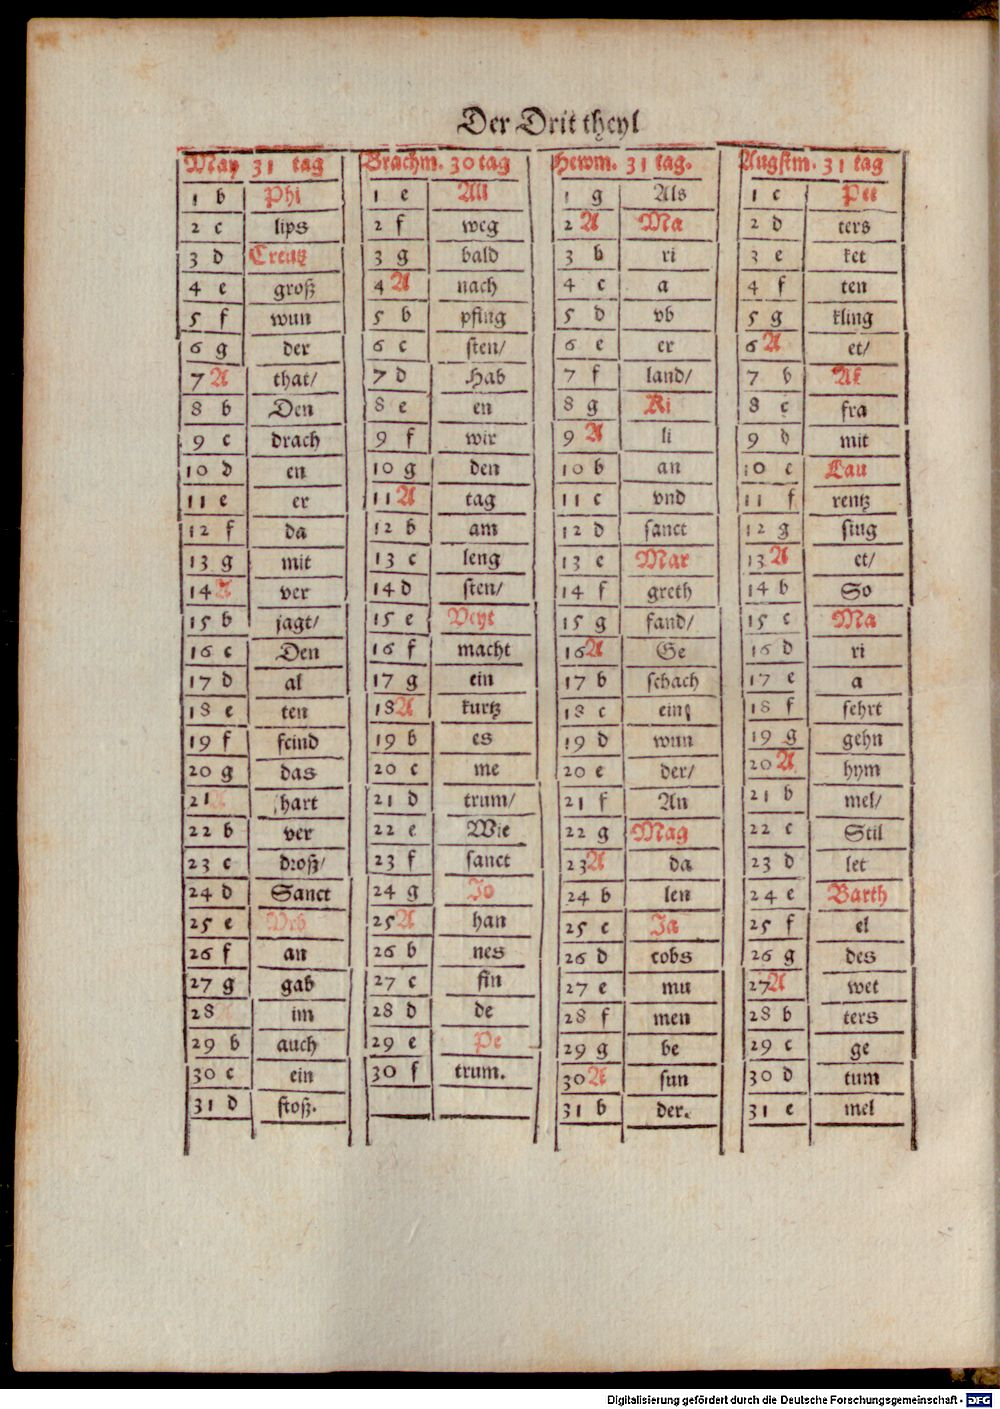 Der Drit theyl
May 31 tag Brachm. 30 tag Hewm. 31 tag. Augstm. 31 tag
1 b Phi 1 e All 1 g Als 1 c Pee
2 c lips 2 f weg 2 A Ma 2 d ters
3 d Creutz 3 g bald 3 b ri 3 e ket
4 e groß 4 A nach 4 c a 4 f ten
5 f wun 5 b pfing 5 d vb 5 g kling
6 g der 6 c sten/ 6 e er 6 A et/
7 A that/ 7 d Hab 7 f land/ 7 b Af
8 b Den 8 e en 8 g Ki 8 c fra
9 c drach 9 f wir 9 A li 9 d mit
10 d en 10 g den 10 b an 10 e Lau
11 e er 11 A tag 11 c vnd 11 f rentz
12 f da 12 b am 12 d sanct 12 g sing
13 g mit 13 c leng 13 e Mar 13 A et/
14 A ver 14 d sten/ 14 f greth 14 b So
15 b jagt/ 15 e Veyt 15 g fand/ 15 c Ma
16 c Den 16 f macht 16 A Ge 16 d ri
17 d al 17 g ein 17 b schach 17 e a
18 e ten 18 A kurtz 18 c eins 18 f fehrt
19 f feind 19 b es 19 d wun 19 g gehn
20 g das 20 c me 20 e der/ 20 A hym
21 A hart 21 d trum/ 21 f An 21 b mel/
22 b ver 22 e Wie 22 g Mag 22 c Stil
23 c droß/ 23 f sanct 23 A da 23 d let
24 d Sanct 24 g Jo 24 b len 24 e Barth
25 e Vrb 25 A han 25 c Ja 25 f el
26 f an 26 b nes 26 d cobs 26 g des
27 g gab 27 c fin 27 e mu 27 A wet
28 A im 28 d de 28 f men 28 b ters
29 b auch 29 e Pe 29 g be 29 c ge
30 c ein 30 f trum. 30 A sun 30 d tum
31 d stoß. 31 b der. 31 e mel
Digitalisierung gefördert durch die Deutsche Forschungsgemeinschaft - DFG